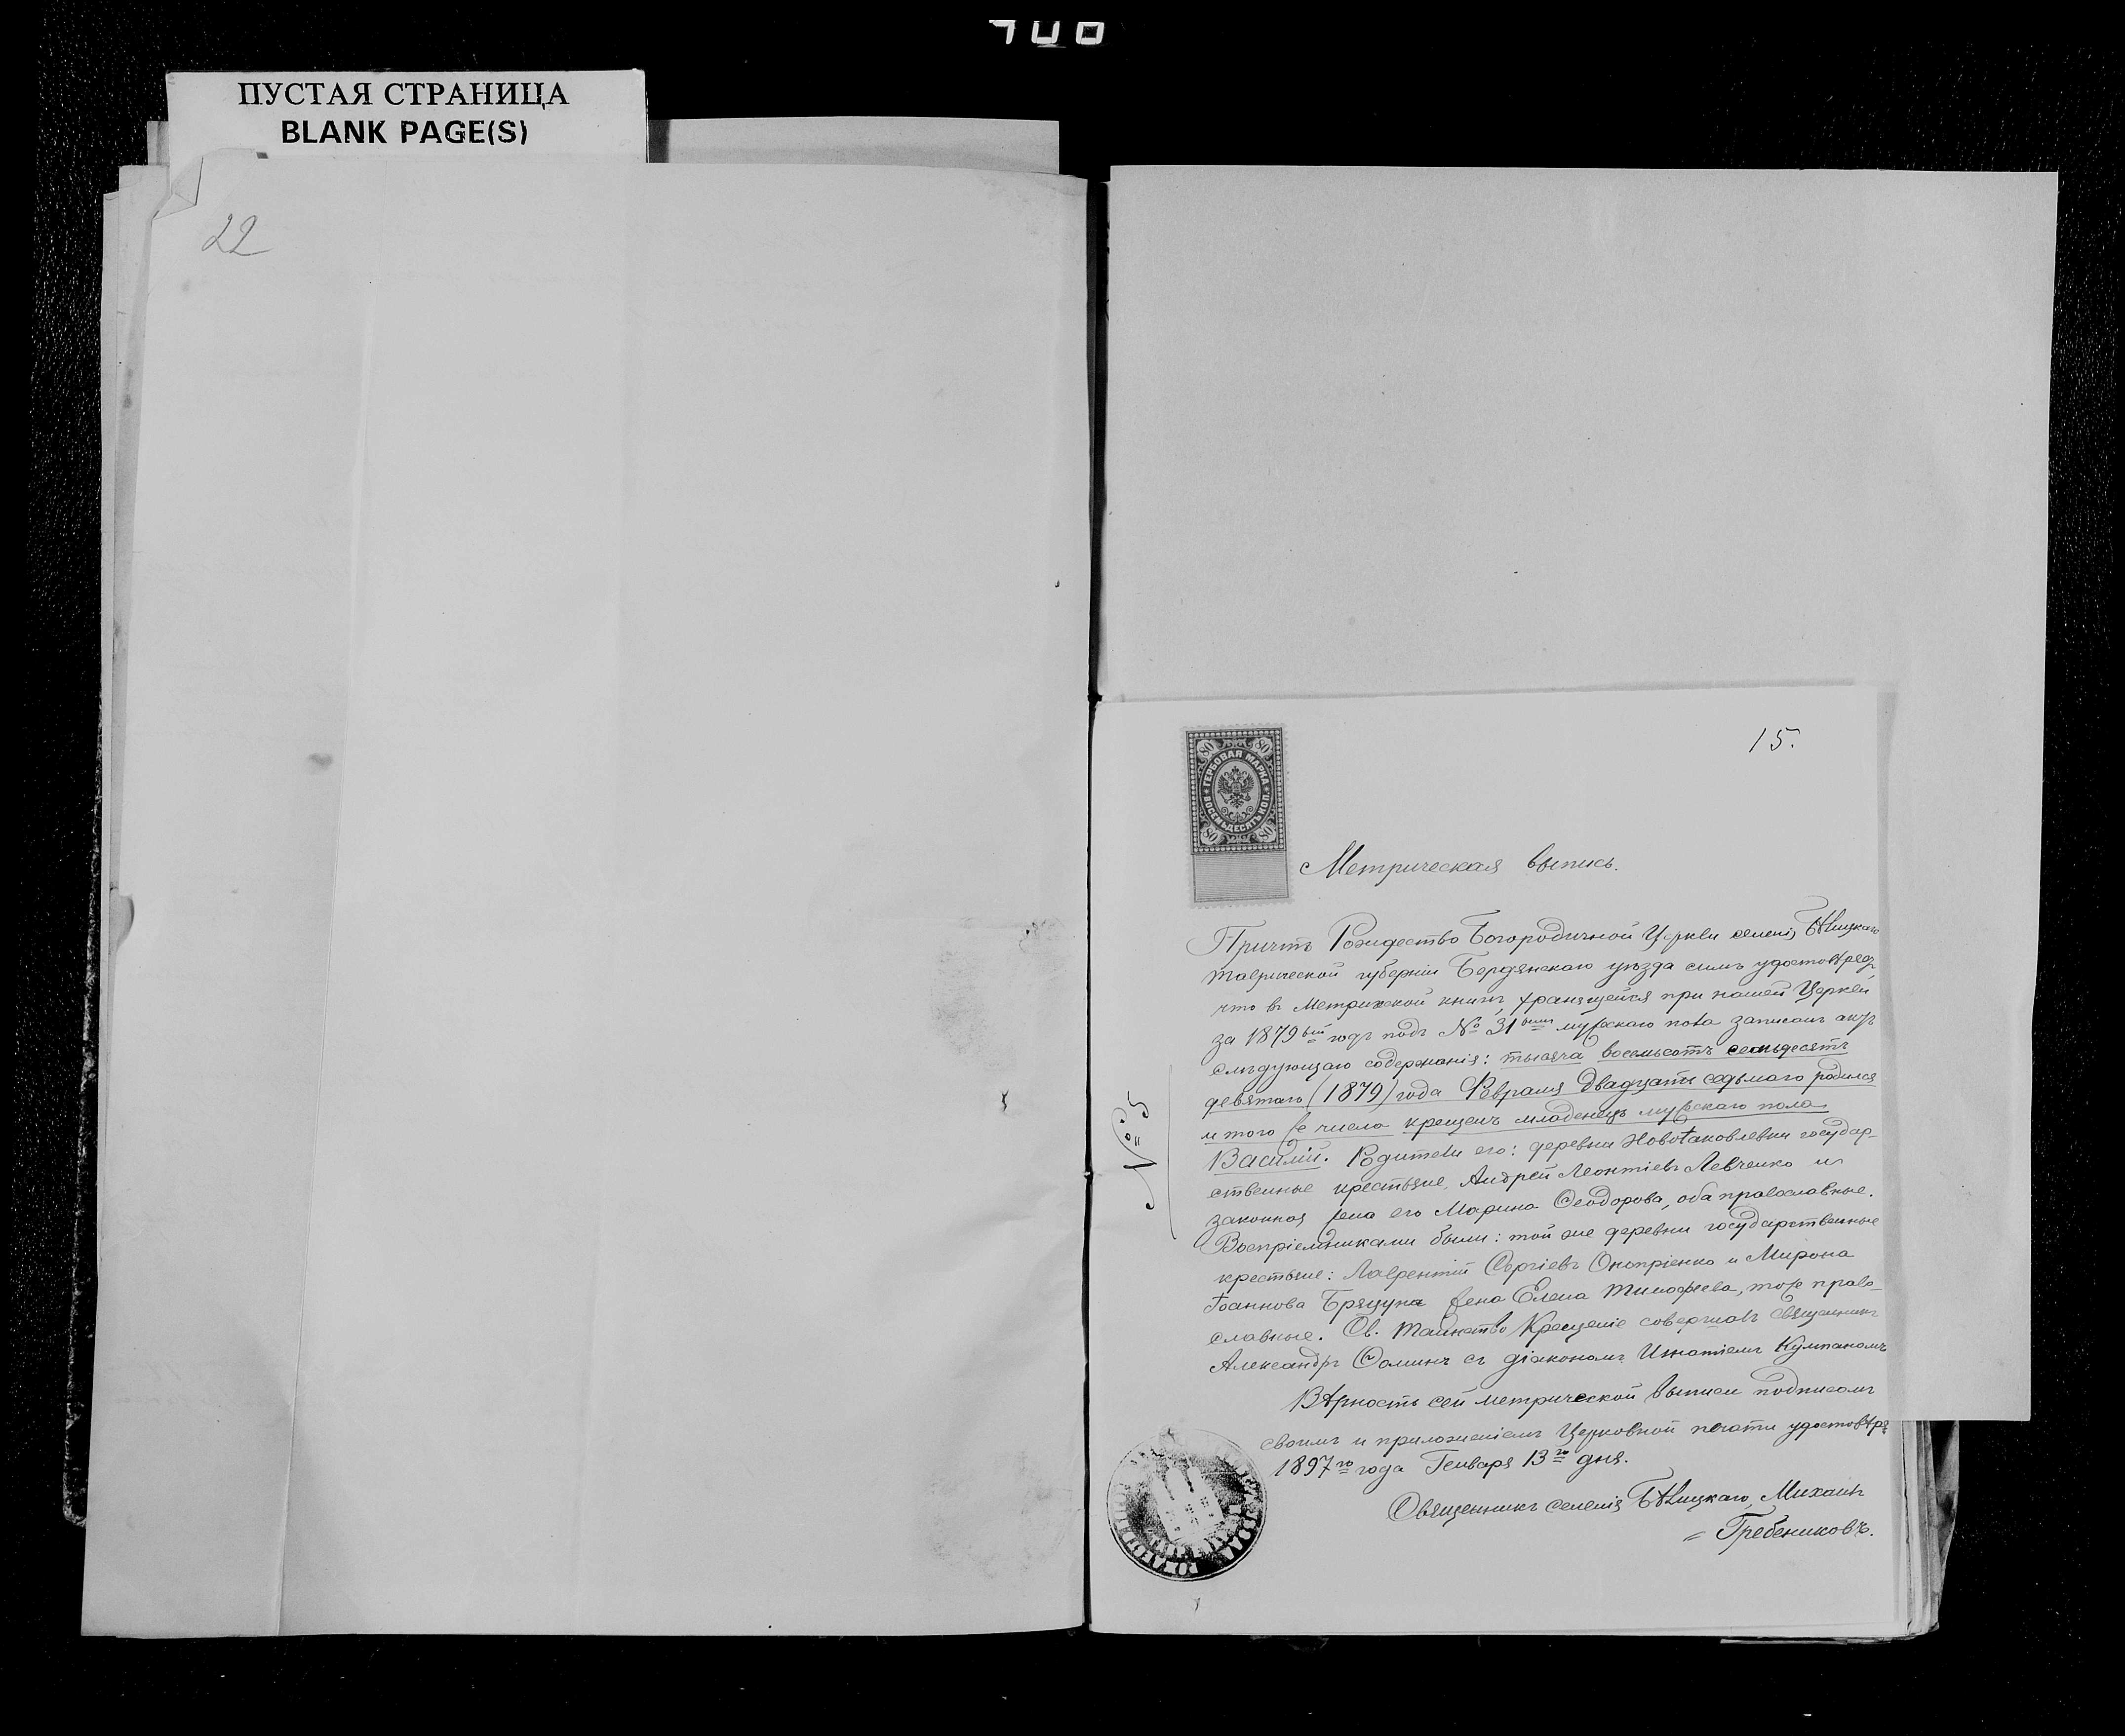 700
ПУСТАЯ СТРАНИЦА
BLANK PAGE(S)
22
15.
80 80
ГЕРБОВАЯ МАРКА
ВОСЕМЬДЕСЯТЪ КОП.
80 80
Метрическая выпись.
Причтъ Рождество Богородичной Церкви селенія Бѣлицкаго
Таврической губерніи Бердянскаго уѣзда симъ удостовѣряетъ,
что въ Метрической книгѣ, хранящейся при нашей Церкви
за 1879вый годъ подъ № 31вымъ мужскаго пола записанъ актъ
слѣдующаго содержанія: тысяча восемьсотъ семьдесятъ
девятаго (1879) года Февраля двадцать седьмаго родился
и того же числа крещенъ младенецъ мужскаго пола
Василій. Родители его: деревни Новоіаковлевки государ-
ственные крестьяне, Андрей Леонтіевъ Левченко и
законная жена его Марина Ѳеодорова, оба православные.
Воспріемниками были: той же деревни государственные
крестьяне: Лаврентій Сергіевъ Оноприенко и Мирона
Іоаннова Брязуна жена Елена Тимофеева, тоже право-
славные. Св. Таинство Крещеніе совершалъ Священникъ
Александръ Фоминъ съ діакономъ Игнатіемъ Кулпаномъ
Вѣрность сей метрической выписи подписомъ
своимъ и приложеніемъ Церковной печати удостовѣряю
1897го года Генваря 13го дня.
Священникъ селенія Бѣлицкаго, Михаилъ
Гребениковъ.
№ 5